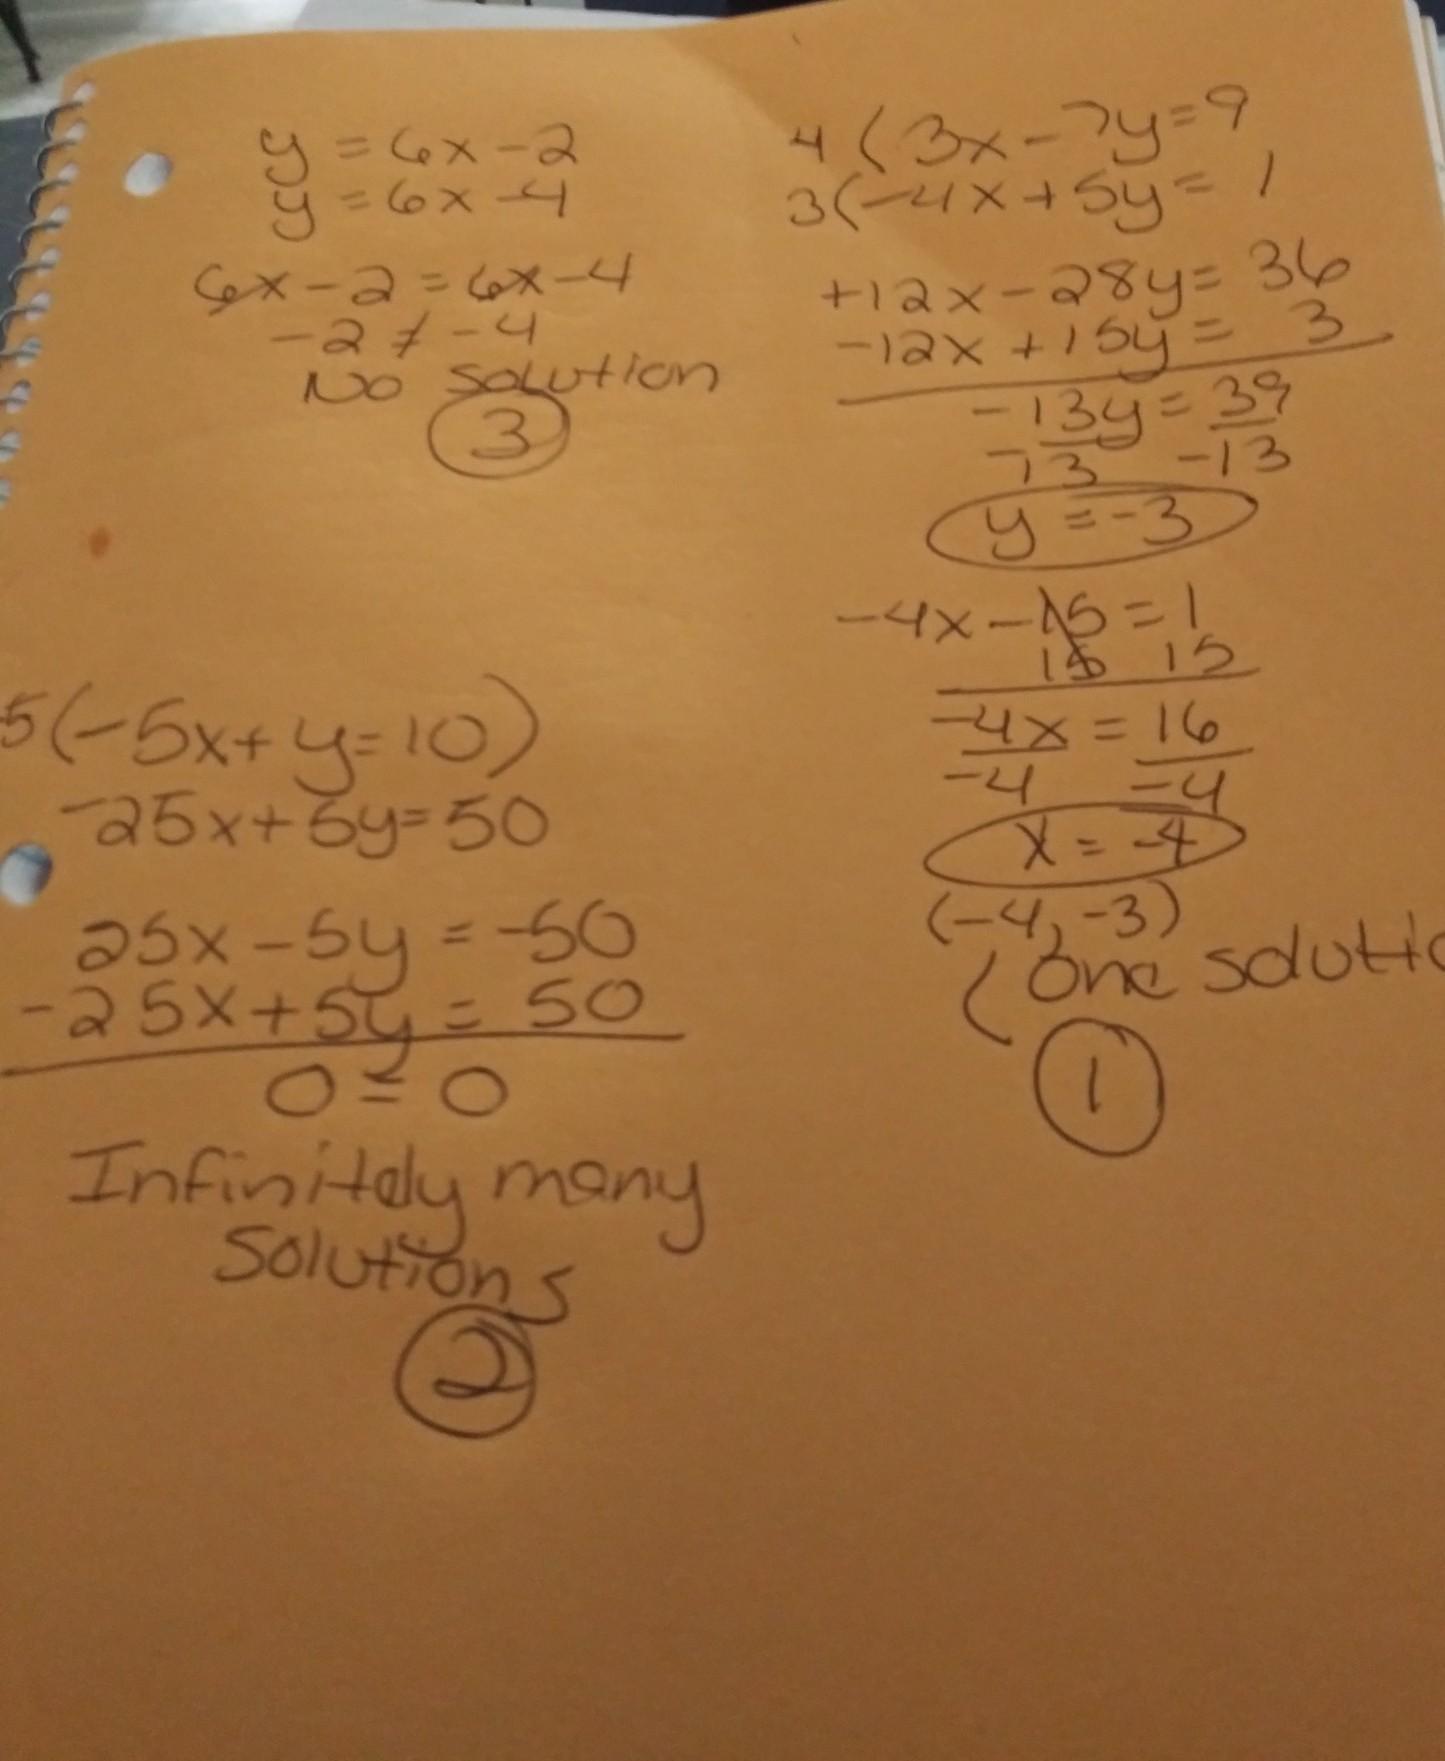 y = 6x - 2
y = 6x - 4
6x - 2 = 6x - 4
-2 ≠ -4
No solution
3
4 ( 3x - 7y = 9
3 ( -4x + 5y = 1
+12x - 28y = 36
-12x + 15y = 3
-13y = 39
-13 -13
y = -3
-4x - 15 = 1
15 15
-4x = 16
-4 -4
x = -4
(-4, -3)
( One solutio
1
5 ( -5x + y = 10 )
-25x + 5y = 50
25x - 5y = -50
-25x + 5y = 50
0 = 0
Infinitely many
Solutions
2